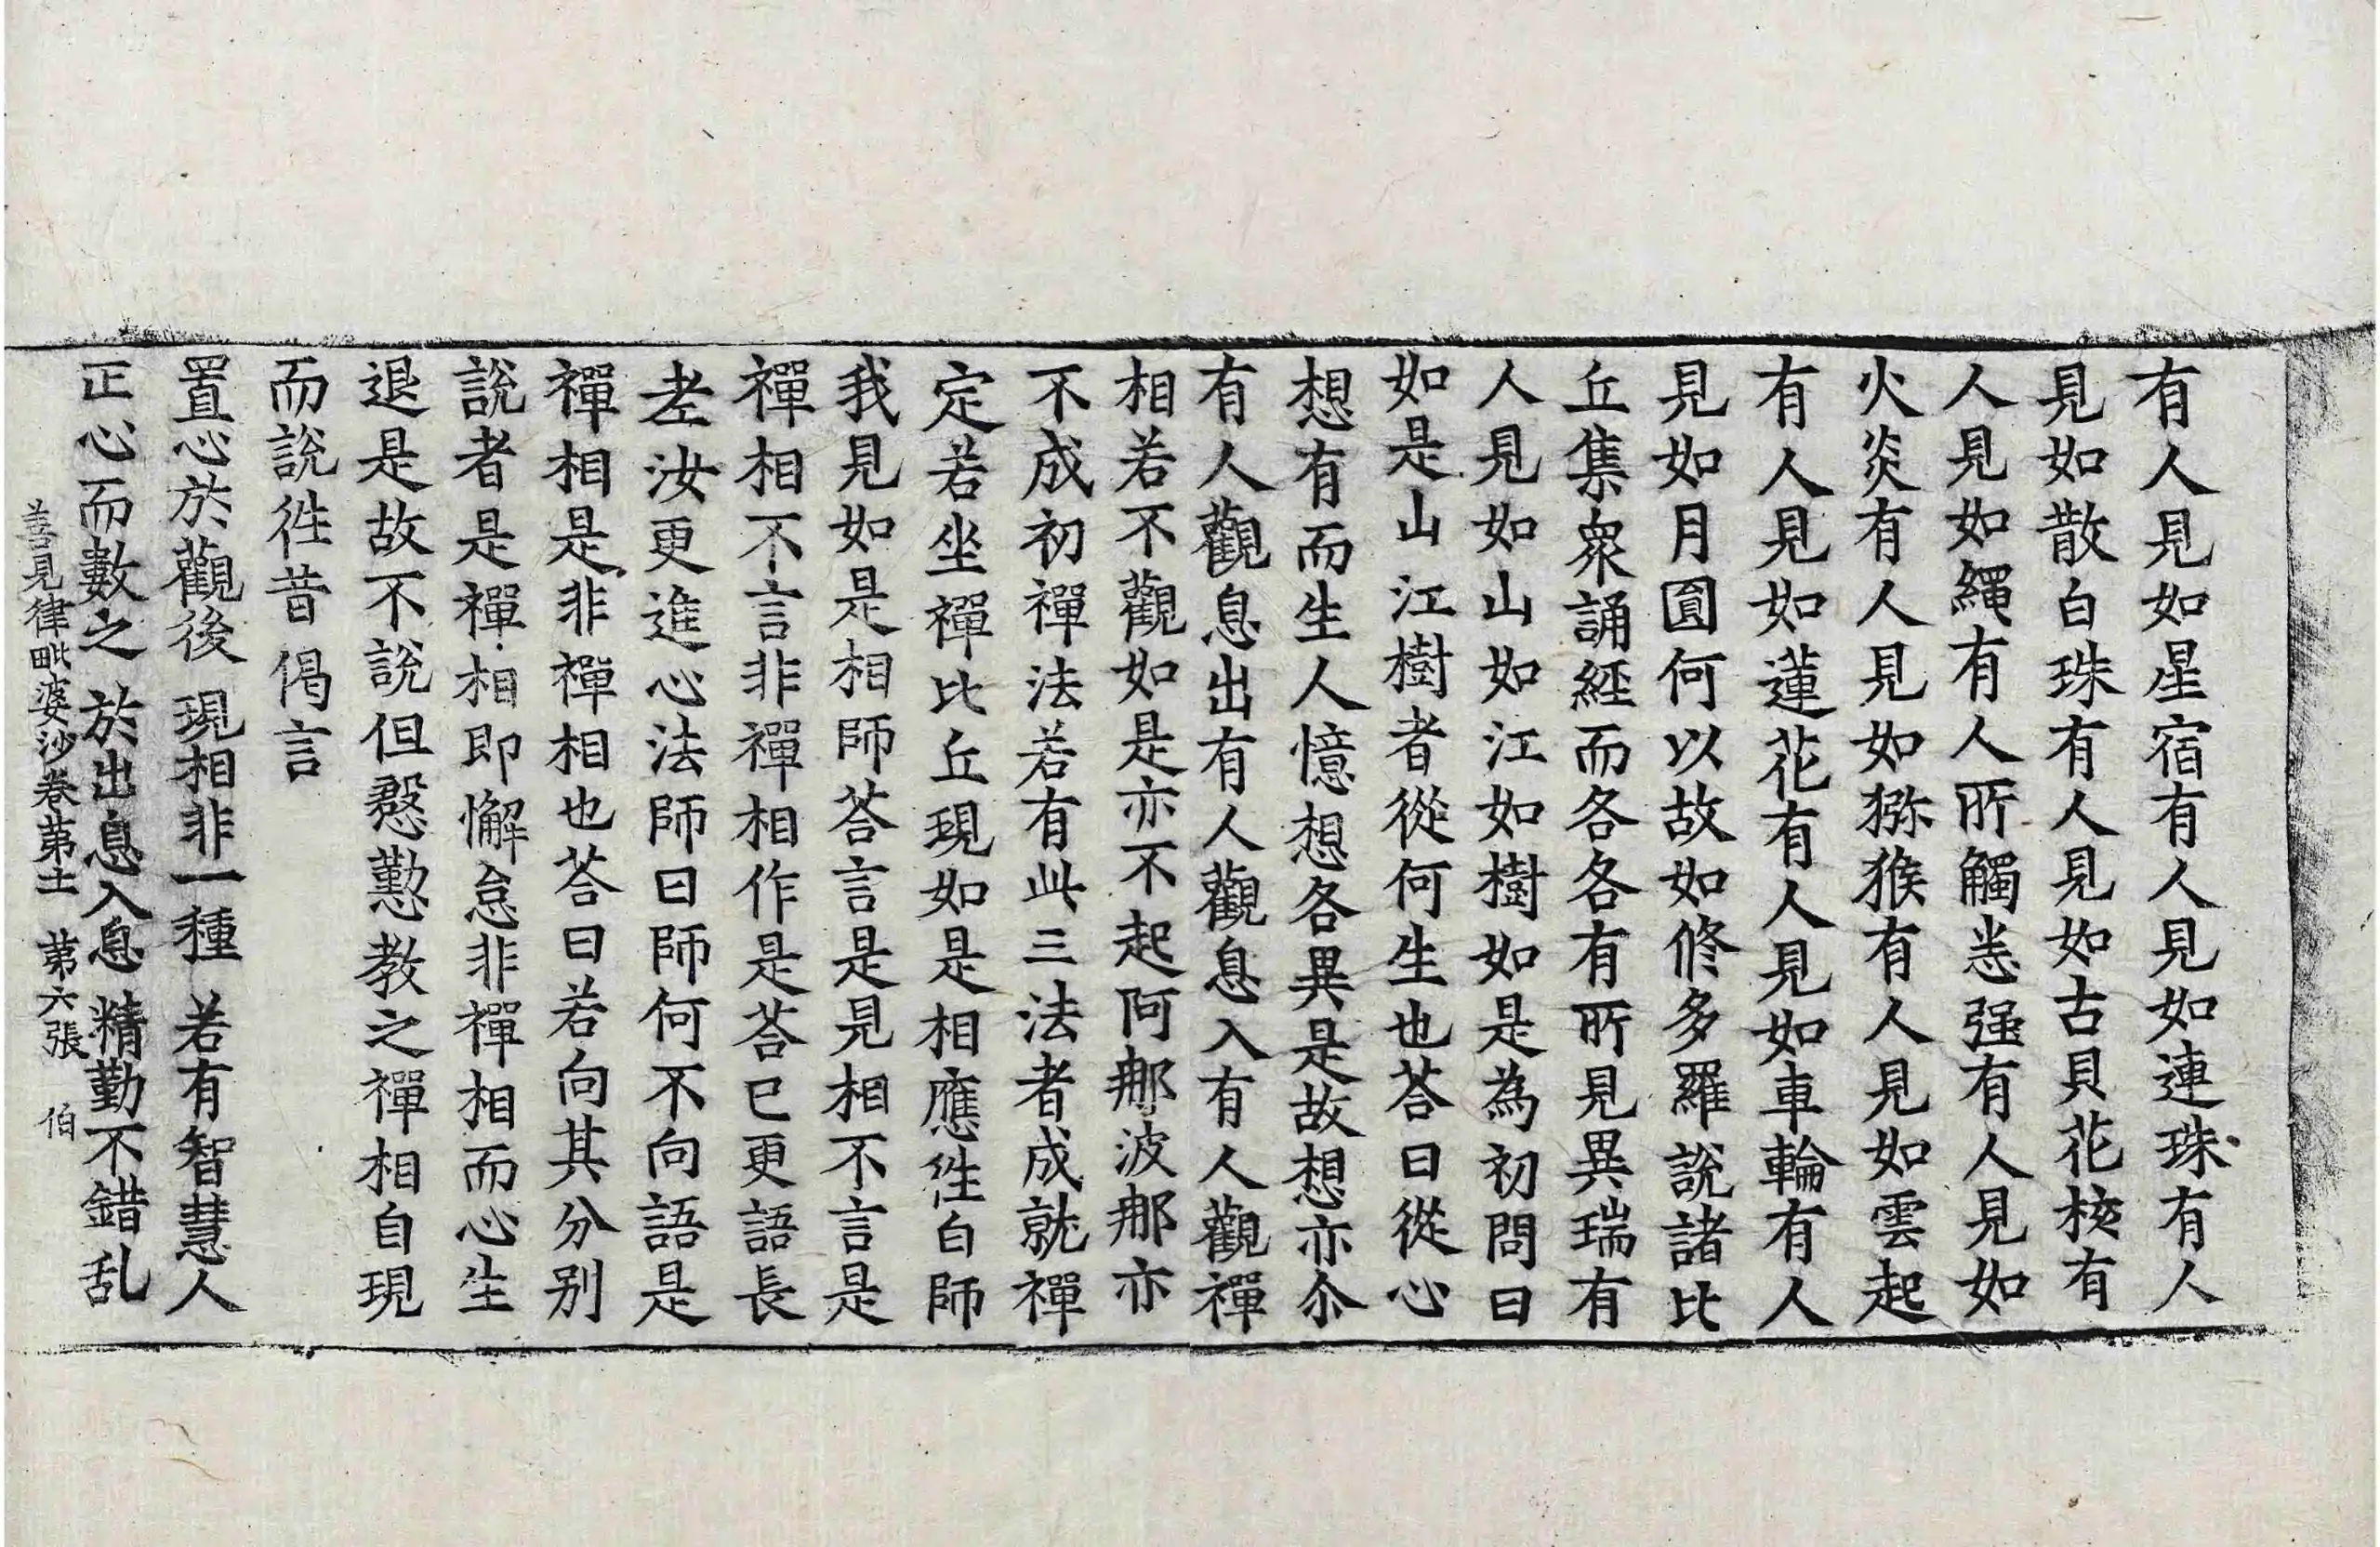 有人見如星宿有人見如連珠有人
見如散白珠有人見如古貝花核有
人見如繩有人所觸恙强有人見如
火炎有人見如猕猴有人見如雲起
有人見如蓮花有人見如車輪有人
見如月圎何以故如修多羅說諸比
丘集衆誦經而各各有所見異瑞有
人見如山如江如樹如是為初問曰
如是山江樹者從何生也荅曰從心
想有而生人憶想各異是故想亦尒
有人觀息出有人觀息入有人觀禪
相若不觀如是亦不起阿那波那亦
不成初禪法若有此三法者成就禪
定若坐禪比丘現如是相應徃白師
我見如是相師荅言是見相不言是
禪相不言非禪相作是荅已更語長
老汝更進心法師曰師何不向語是
禪相是非禪相也荅曰若向其分别
說者是禪相即懈怠非禪相而心生
退是故不說但慇懃教之禪相自現
而說徃昔偈言
置心於觀後 現相非一種 若有智慧人
正心而數之 於出息入息 精勤不錯乱
善見律毗婆沙卷苐十一 苐六張 伯